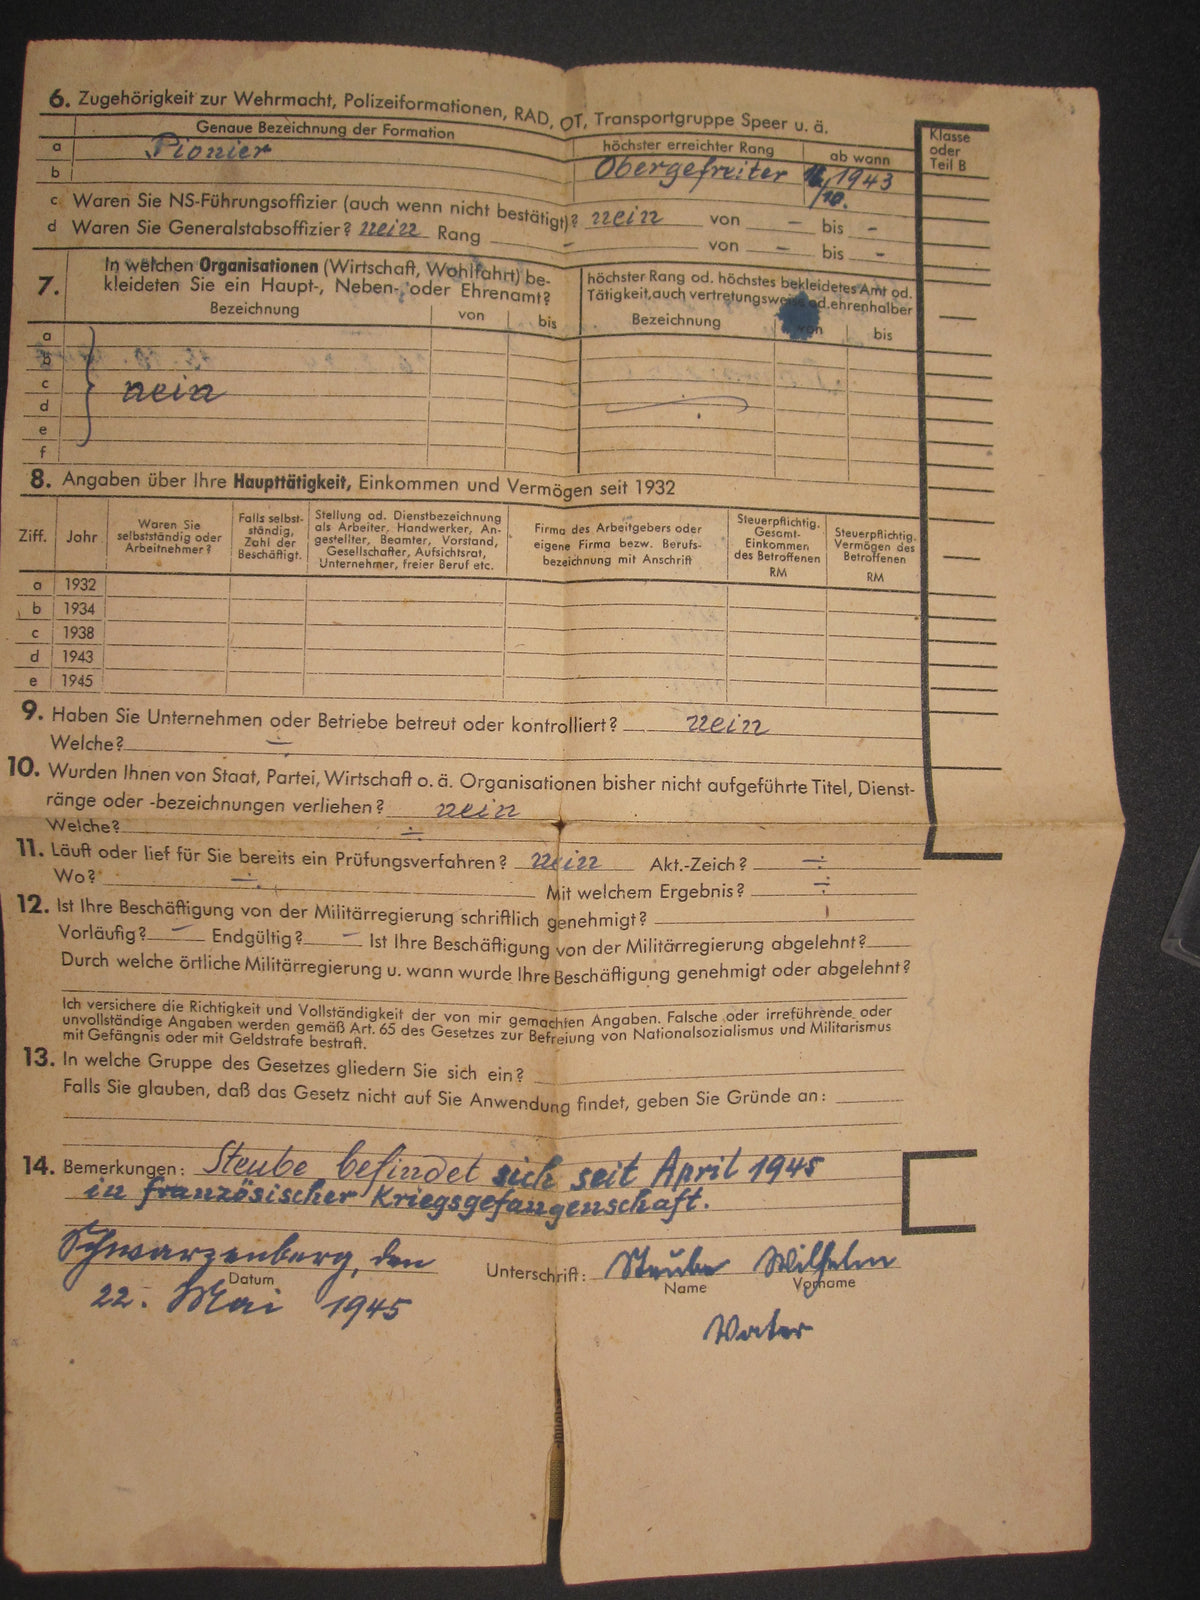 6. Zugehörigkeit zur Wehrmacht, Polizeiformationen, RAD, OT, Transportgruppe Speer u. ä.
Genaue Bezeichnung der Formation
höchster erreichter Rang
ab wann
Klasse oder Teil B
a Pionier Obergefreiter 1943
b
c Waren Sie NS-Führungsoffizier (auch wenn nicht bestätigt)? nein von – bis –
d Waren Sie Generalstabsoffizier? nein Rang – von – bis –
7. In welchen Organisationen (Wirtschaft, Wohlfahrt) be-
kleideten Sie ein Haupt-, Neben- oder Ehrenamt?
höchster Rang od. höchstes bekleidetes Amt od.
Tätigkeit, auch vertretungsweise od. ehrenhalber
Bezeichnung von bis Bezeichnung von bis
a
b
c nein
d
e
f
8. Angaben über Ihre Haupttätigkeit, Einkommen und Vermögen seit 1932
Ziff.
Jahr
Waren Sie
selbstständig oder
Arbeitnehmer?
Falls selbst-
ständig,
Zahl der
Beschäftigt.
Stellung od. Dienstbezeichnung
als Arbeiter, Handwerker, An-
gestellter, Beamter, Vorstand,
Gesellschafter, Aufsichtsrat,
Unternehmer, freier Beruf etc.
Firma des Arbeitgebers oder
eigene Firma bezw. Berufs-
bezeichnung mit Anschrift
Steuerpflichtig.
Gesamt-
Einkommen
des Betroffenen
RM
Steuerpflichtig.
Vermögen des
Betroffenen
RM
a 1932
b 1934
c 1938
d 1943
e 1945
9. Haben Sie Unternehmen oder Betriebe betreut oder kontrolliert? nein
Welche? ÷
10. Wurden Ihnen von Staat, Partei, Wirtschaft o. ä. Organisationen bisher nicht aufgeführte Titel, Dienst-
ränge oder -bezeichnungen verliehen? nein
Welche? ÷
11. Läuft oder lief für Sie bereits ein Prüfungsverfahren? nein Akt.-Zeich? ÷
Wo? ÷. Mit welchem Ergebnis? ÷
12. Ist Ihre Beschäftigung von der Militärregierung schriftlich genehmigt?
Vorläufig? – Endgültig? – Ist Ihre Beschäftigung von der Militärregierung abgelehnt?
Durch welche örtliche Militärregierung u. wann wurde Ihre Beschäftigung genehmigt oder abgelehnt?
Ich versichere die Richtigkeit und Vollständigkeit der von mir gemachten Angaben. Falsche oder irreführende oder
unvollständige Angaben werden gemäß Art. 65 des Gesetzes zur Befreiung von Nationalsozialismus und Militarismus
mit Gefängnis oder mit Geldstrafe bestraft.
13. In welche Gruppe des Gesetzes gliedern Sie sich ein?
Falls Sie glauben, daß das Gesetz nicht auf Sie Anwendung findet, geben Sie Gründe an:
14. Bemerkungen: Steube befindet sich seit April 1945
in französischer Kriegsgefangenschaft.
Schwarzenberg, den
Unterschrift: Steube Wilhelm
Datum
Name Vorname
22. Mai 1945
Vater